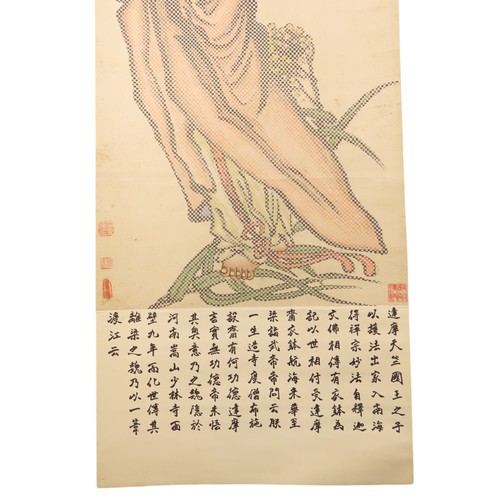 達摩天竺國王之子
以護法出家入南海
得禪宗妙法自釋迦
文佛相傳有衣鉢為
記以世相付受達摩
齎衣鉢航海來華至
梁詣武帝帝問云朕
一生造寺度僧布施
設齋有何功德達摩
言實無功德帝未悟
其奧意乃之魏隱於
河南嵩山少林寺面
壁九年而化世傳其
離梁之魏乃以一葦
渡江云